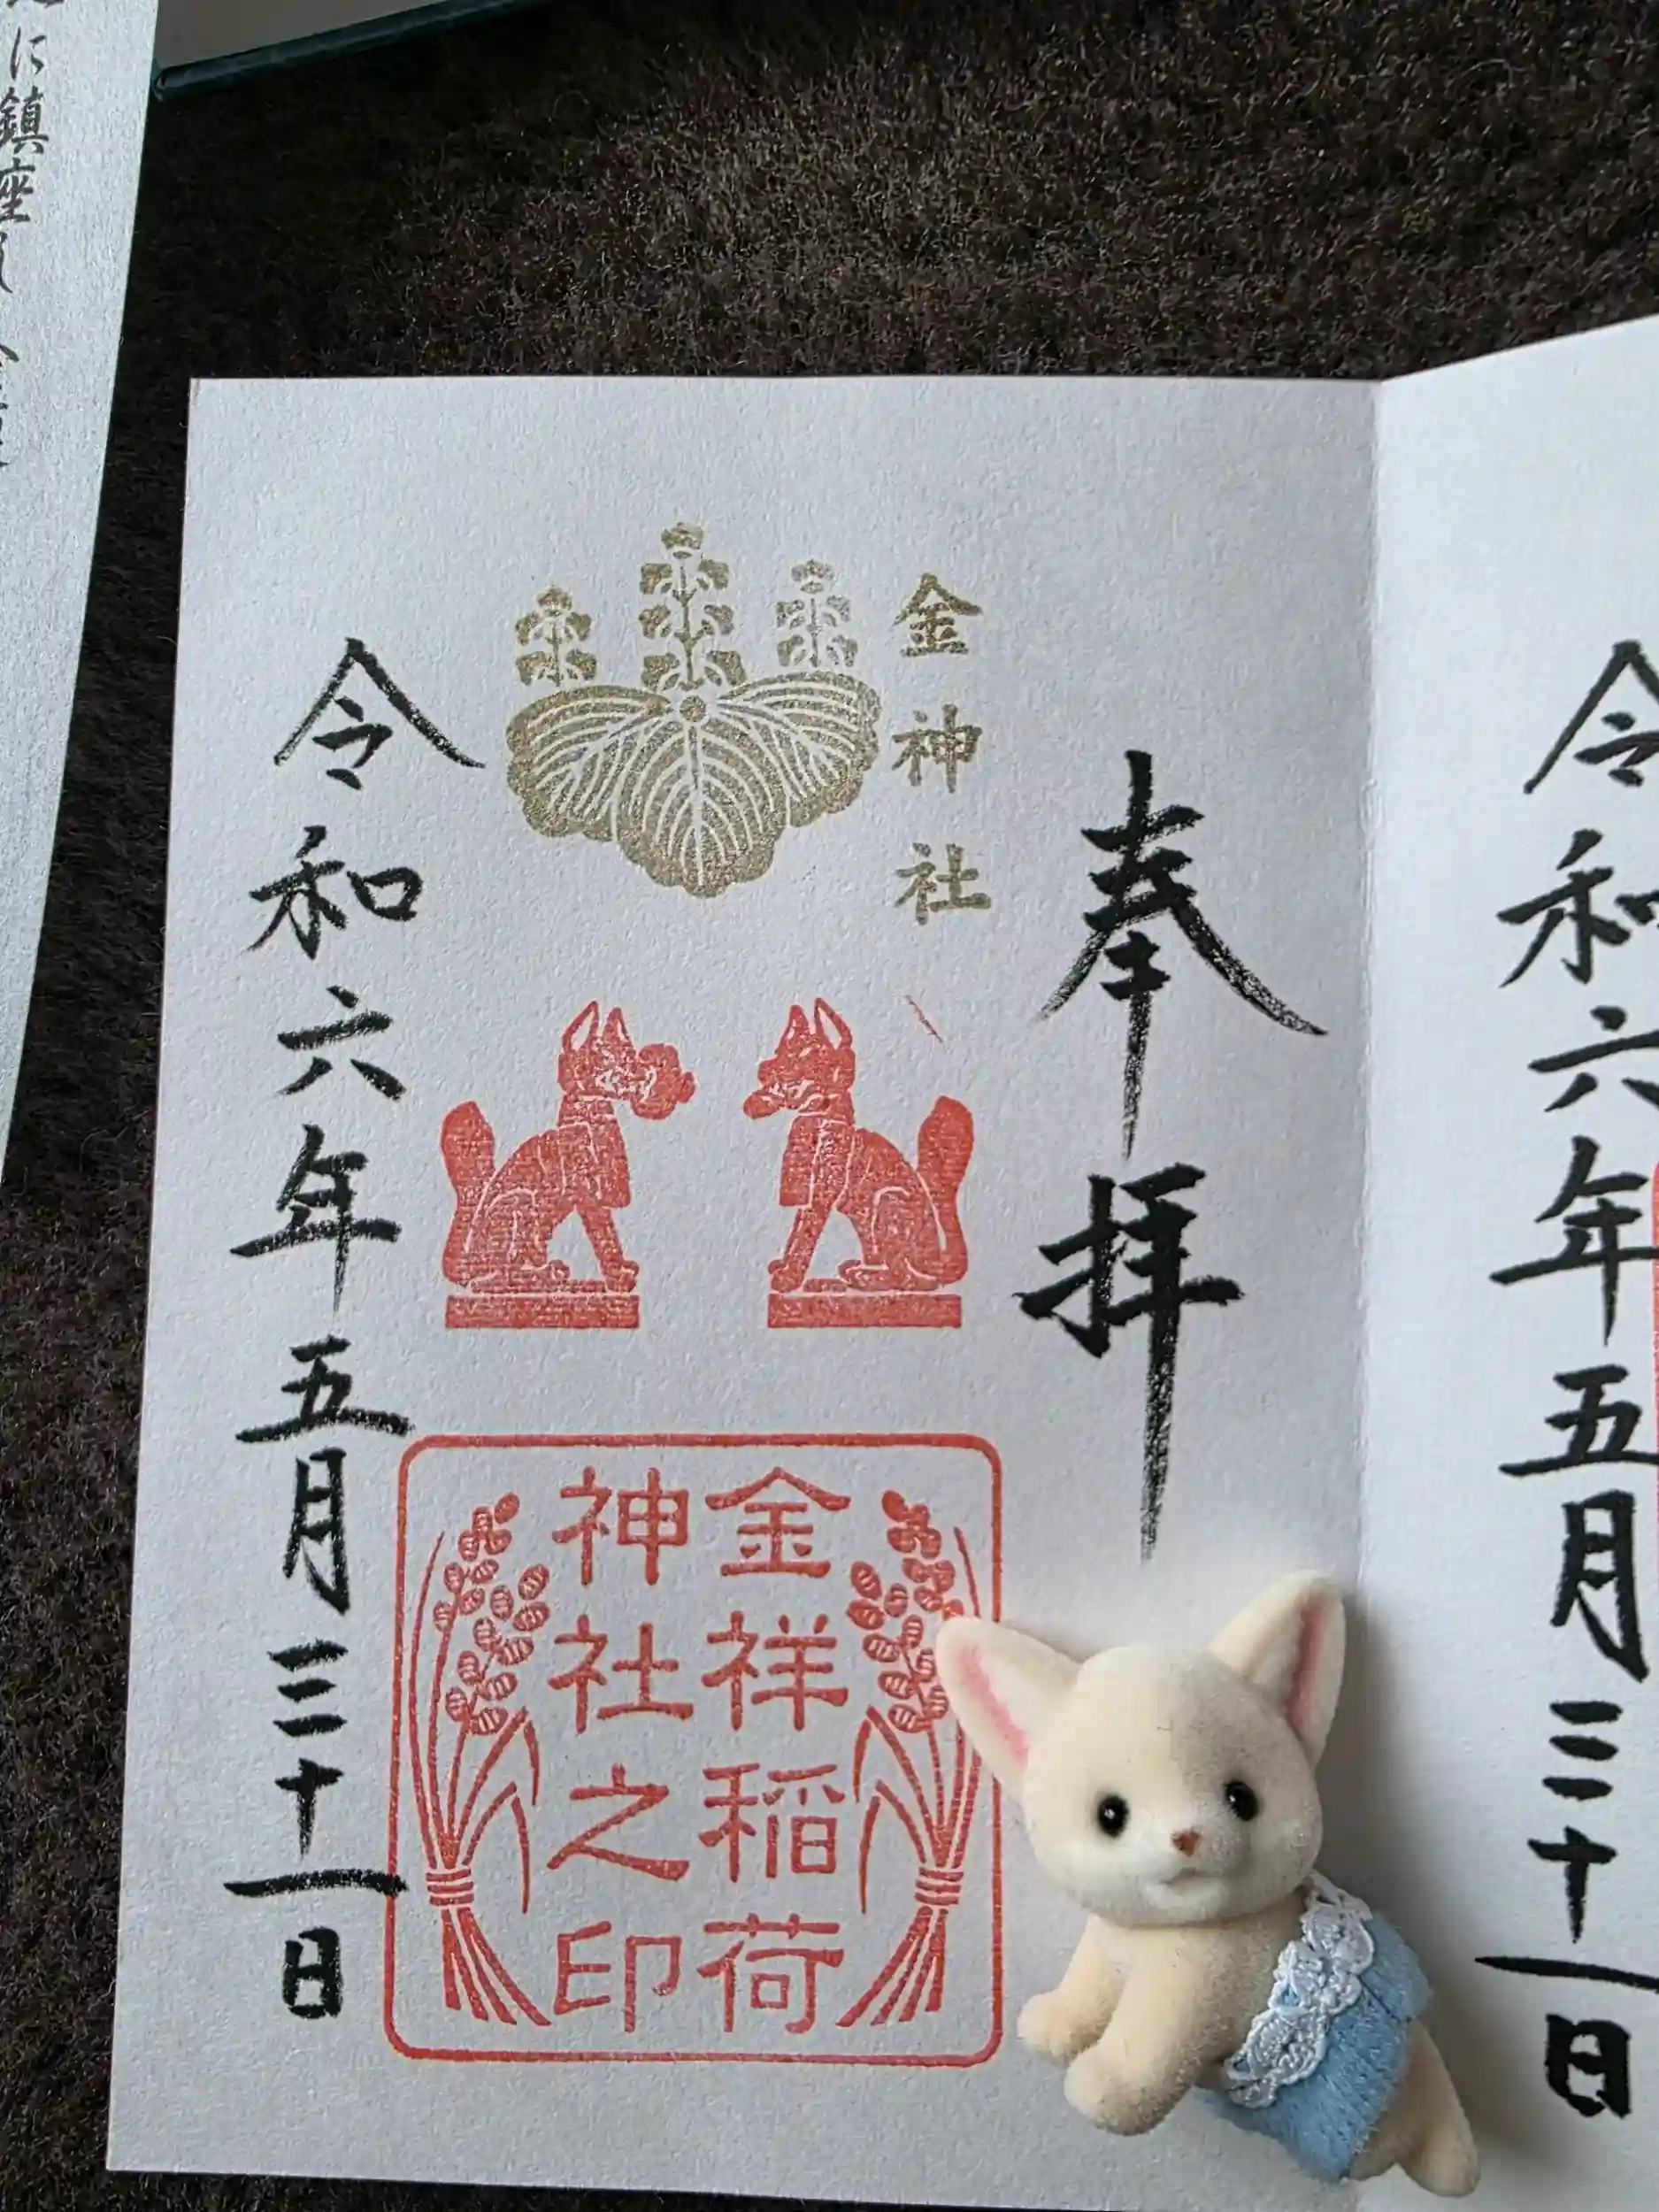 令和六年五月三十一日
奉拝
金神社
金祥稲荷
神社之印
令和六年五月三十一日
に鎮座